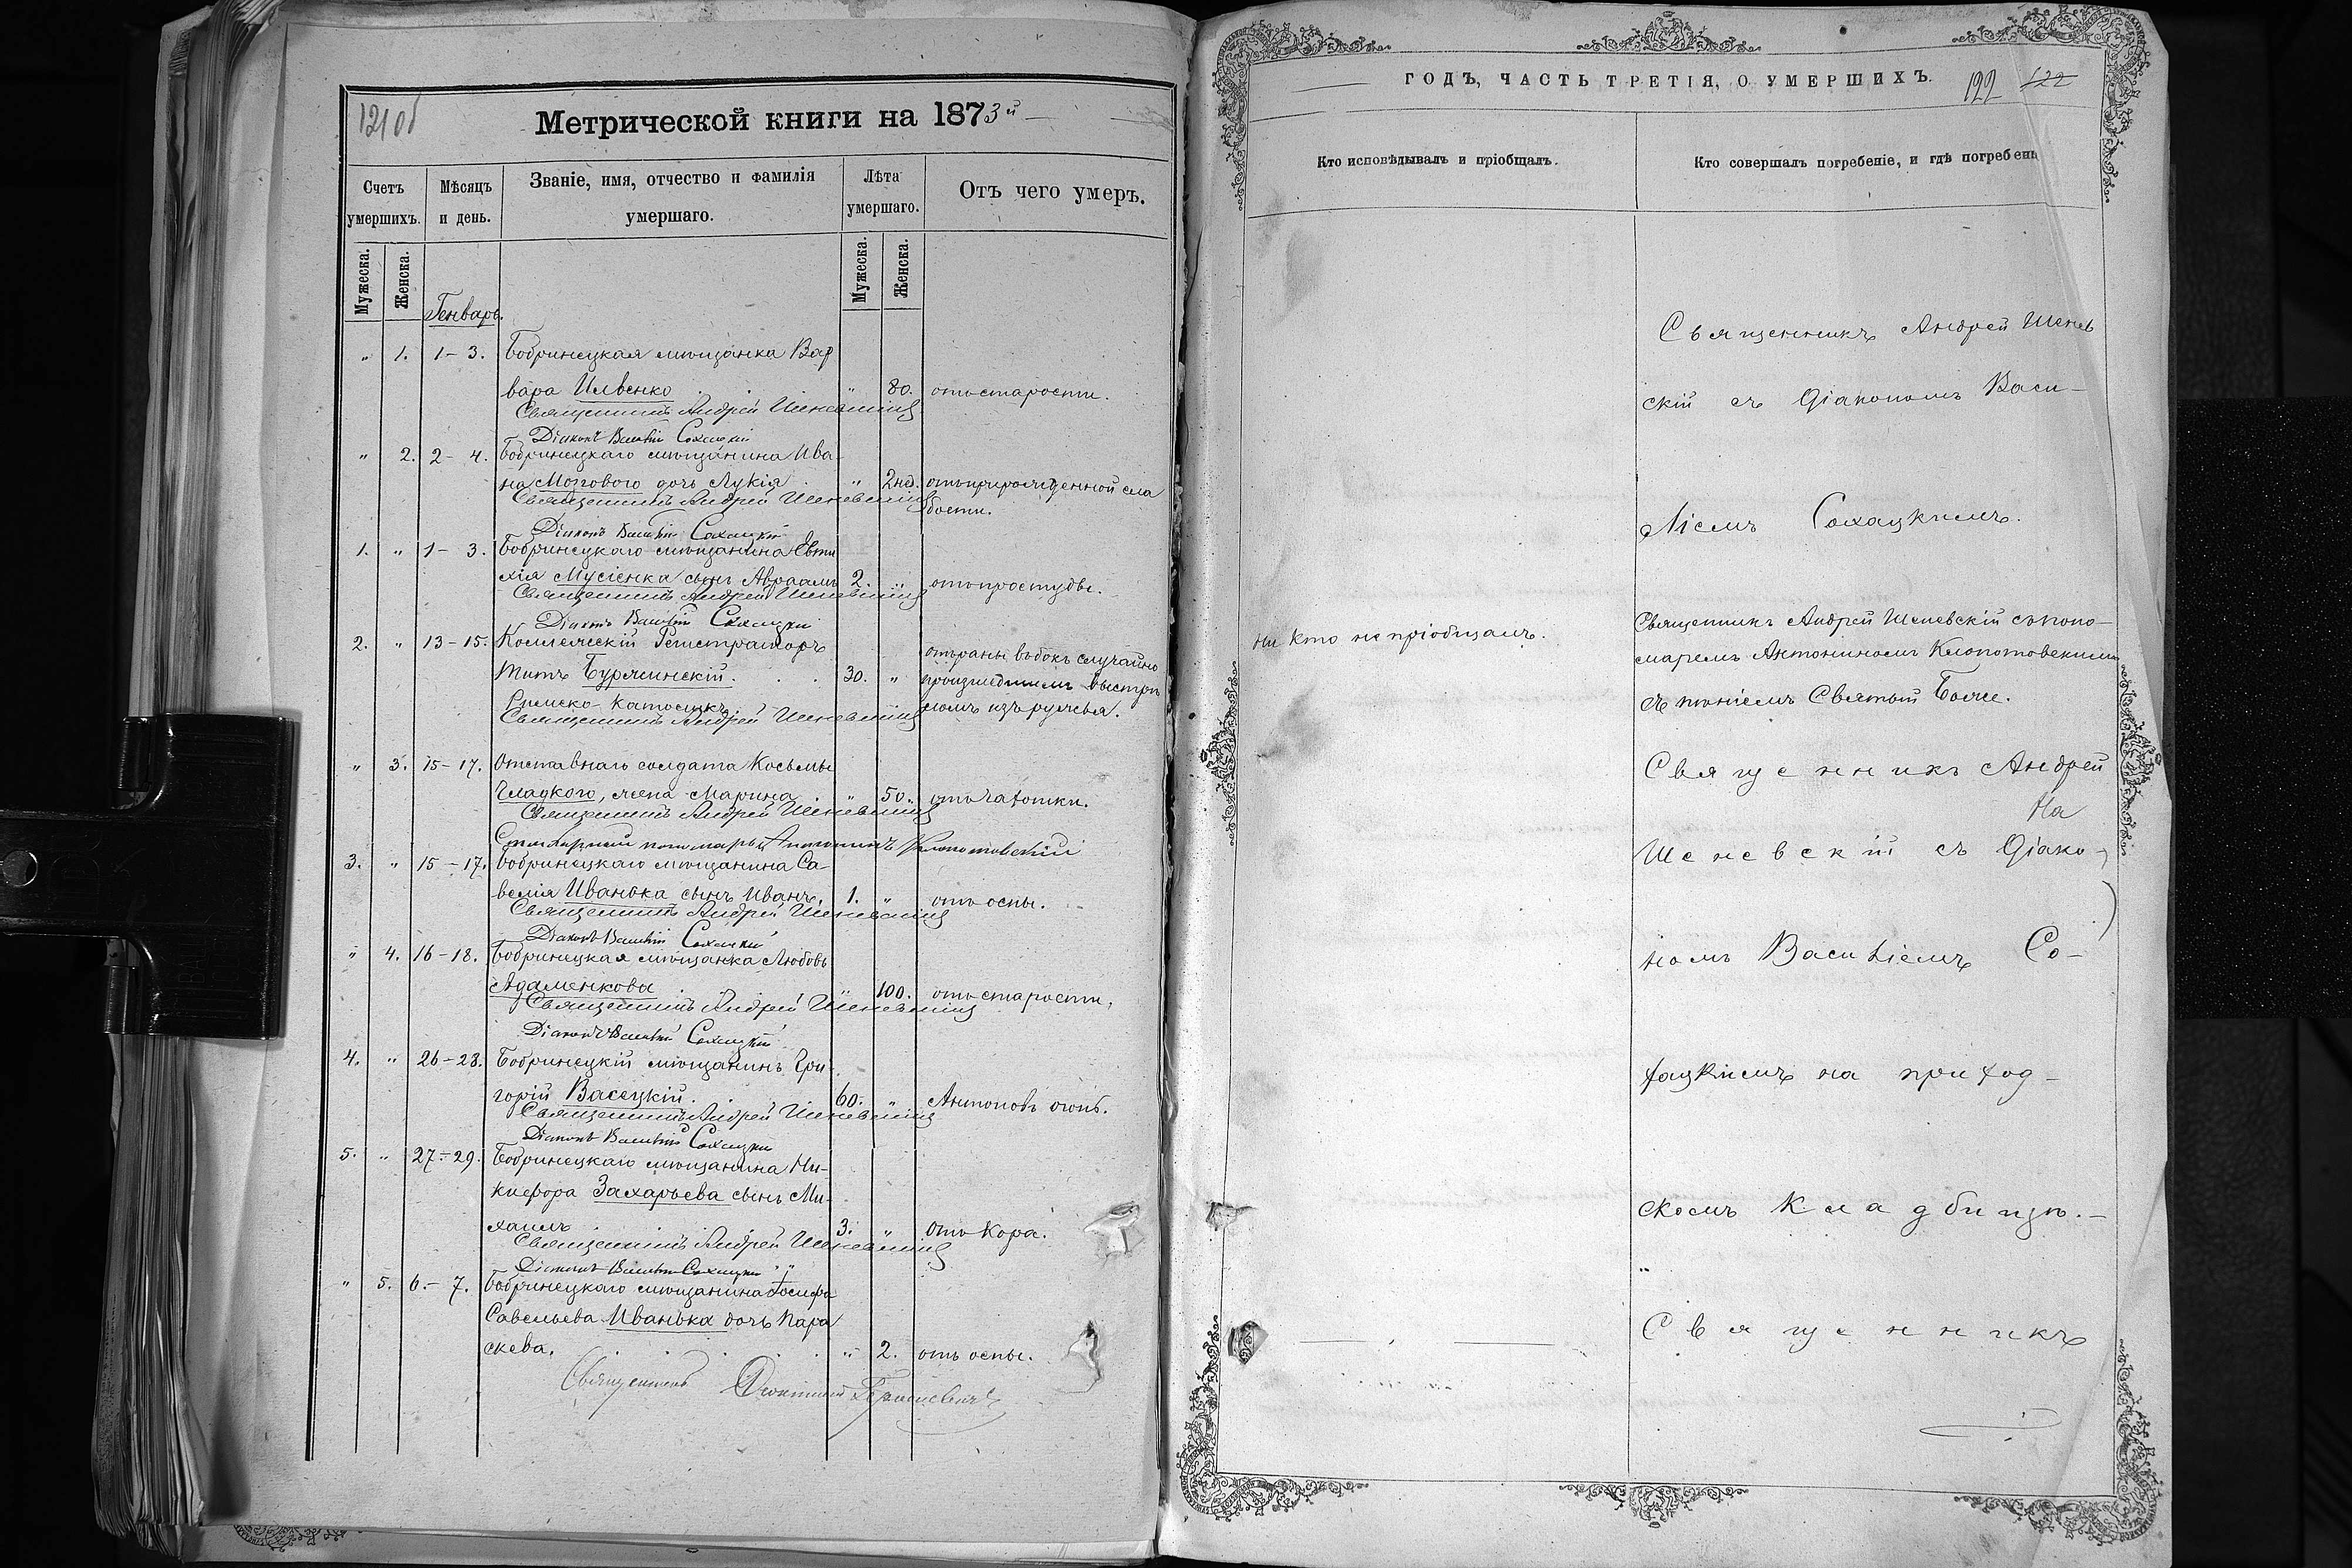 121 об
Метрической книги на 1873й
Счетъ умершихъ.
Мѣсяцъ и день.
Званіе, имя, отчество и фамилія умершаго.
Лѣта умершаго.
Отъ чего умеръ.
Мужеска. Женска. Мужеска. Женска.
Генварь.
" 1. 1-3. Бобринецкая мѣщанка Вар
вара Ивенко " 80. отъ старости.
Священникъ Андрей Шеневскій
Діаконъ Василій Сохацкій
" 2. 2-4. Бобринецкаго мѣщанина Ива-
на Мозгового дочь Лукія " 2 нд. отъ прирожденной сла
Священникъ Андрей Шеневскій бости.
Діаконъ Василій Сохацкій
1. " 1-3. Бобринецкаго мѣщанина Евти
хія Мусіенка сынъ Авраамъ 2. " отъ простуды.
Священникъ Андрей Шеневскій
Діаконъ Василій Сохацкій
2. " 13-15. Коллежскій Регистраторъ
отъ раны въ бокъ случайно
Титъ Буржинскій. 30. " происшедшимъ выстрѣ
Римско-Католикъ ломъ изъ ружья.
Священникъ Андрей Шеневскій
" 3. 15-17. Отставнаго солдата Косьмы
Гладкого, жена Марина. " 50. отъ чахотки.
Священникъ Андрей Шеневскій
пономарь Антонинъ Клопотовскій
3. " 15-17. Бобринецкаго мѣщанина Са-
велія Иванька сынъ Иванъ. 1. " отъ оспы.
Священникъ Андрей Шеневскій
Діаконъ Василій Сохацкій
" 4. 16-18. Бобринецкая мѣщанка Любовь
Адаменкова " 100. отъ старости.
Священникъ Андрей Шеневскій
Діаконъ Василій Сохацкій
4. " 26-28. Бобринецкій мѣщанинъ Гри-
горій Васецкій. 60. " Антоновъ огонь.
Священникъ Андрей Шеневскій
Діаконъ Василій Сохацкій
5. " 27-29. Бобринецкаго мѣщанина Ни-
кифора Захарьева сынъ Ми-
хаилъ 3. " Отъ кора.
Священникъ Андрей Шеневскій
Діаконъ Василій Сохацкій
" 5. 6.-7. Бобринецкаго мѣщанина Іосифа
Савельева Иванька дочь Пара
скева. " 2. отъ оспы.
Священникъ
ГОДЪ, ЧАСТЬ ТРЕТІЯ, О УМЕРШИХЪ. 122 122
Кто исповѣдывалъ и пріобщалъ.
Кто совершалъ погребеніе, и гдѣ погребенъ
Священникъ Андрей Шенев
скій съ Діакономъ Васи-
ліемъ Сохацкимъ.
Ни кто не пріобщалъ.
Священникъ Андрей Шеневскій съ поно-
маремъ Антониномъ Клопотовскимъ
съ пѣніемъ Святый Боже.
Священникъ Андрей
На
Шеневскій съ Діако-
номъ Василіемъ Со-
хацкимъ на приход-
скомъ кладбищѣ.-
"
Священникъ